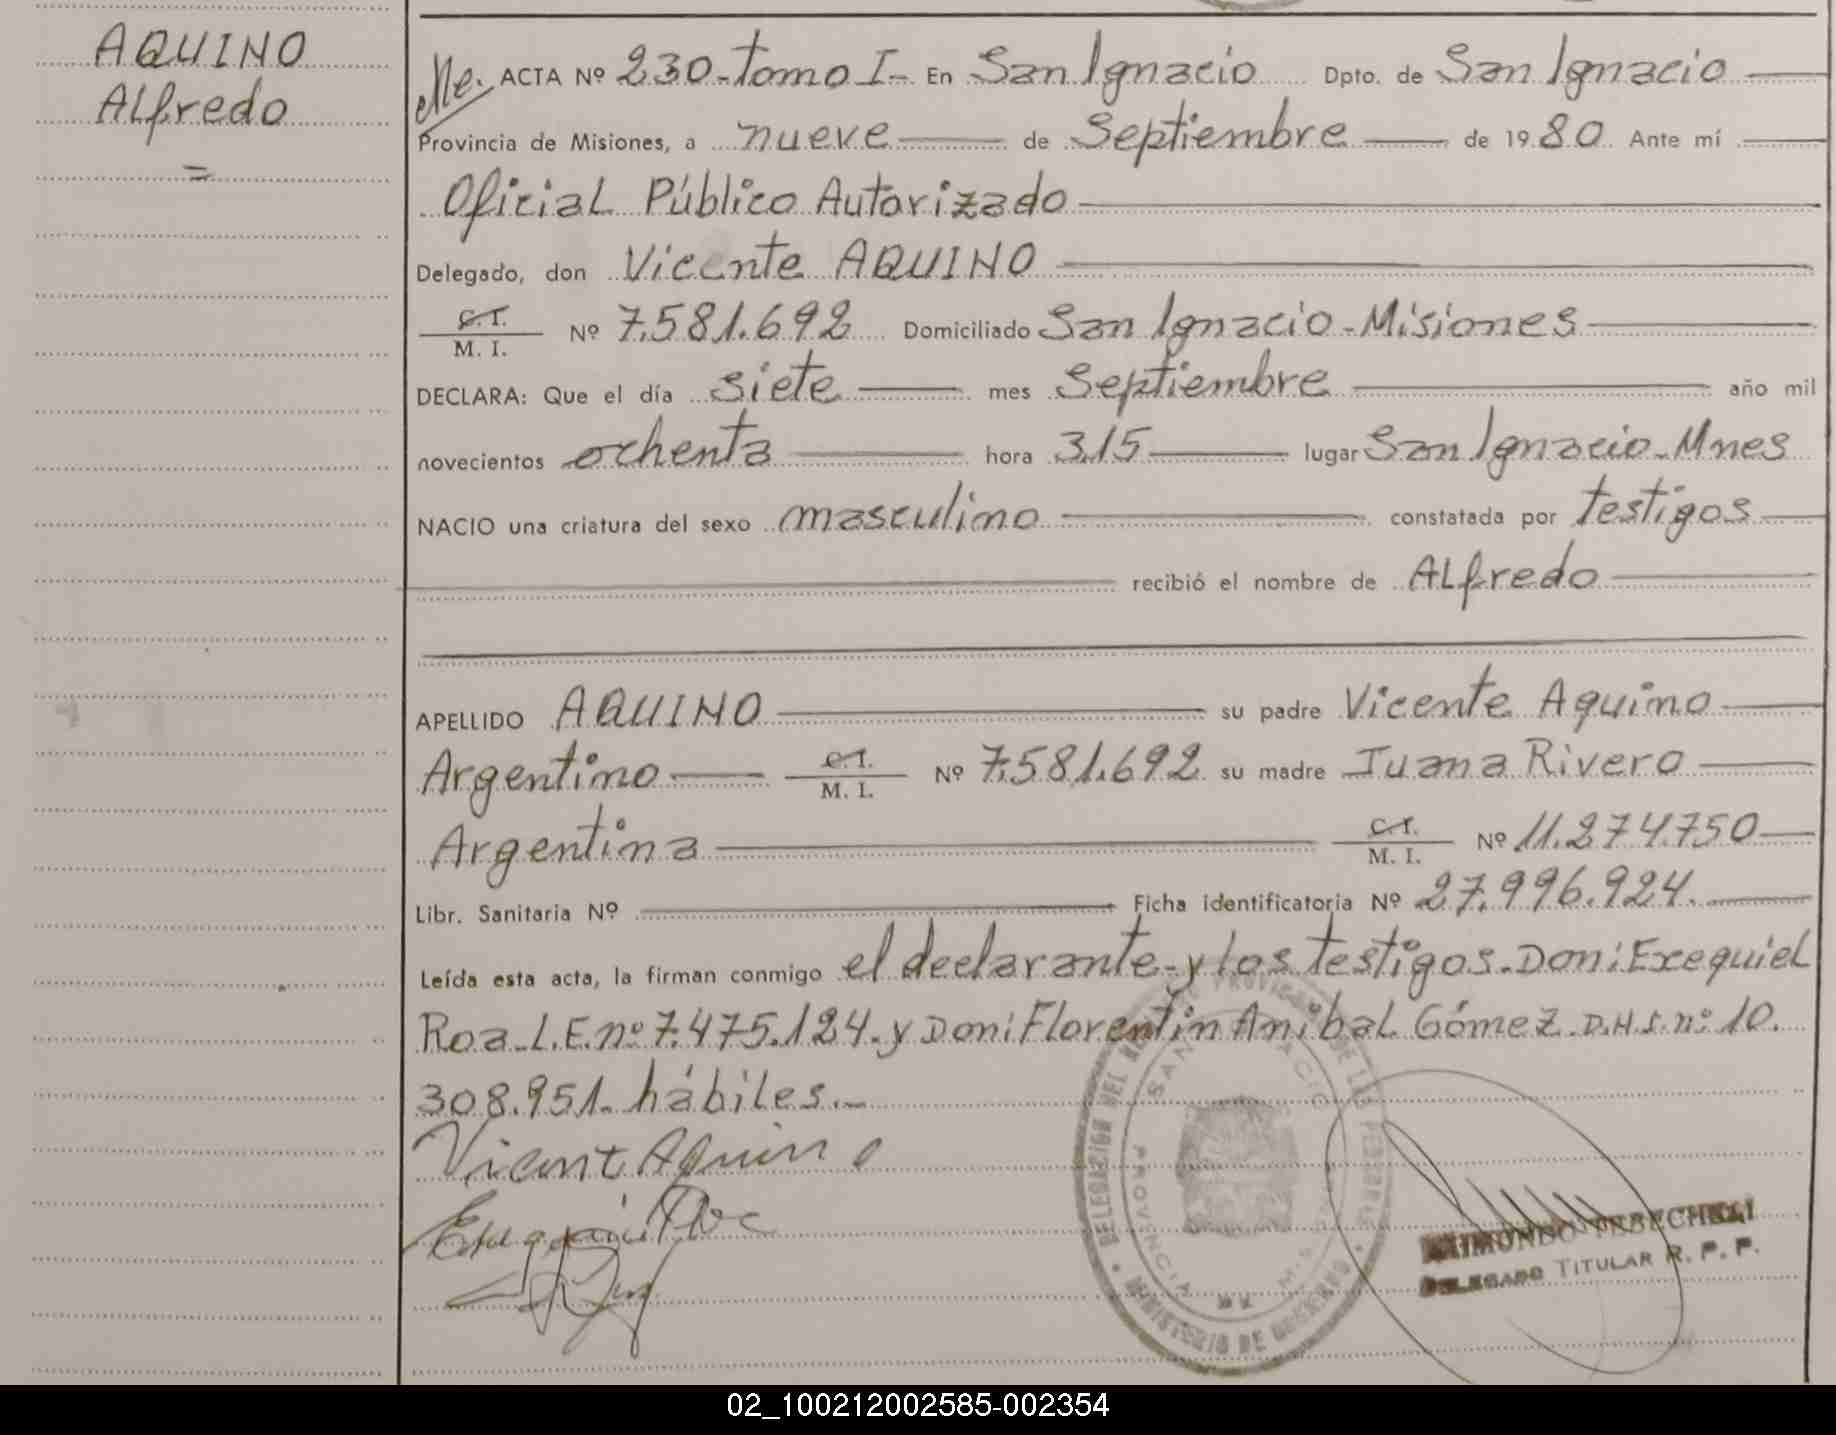 AQUINO
Alfredo
=
Me. ACTA Nº 230-tomo I- En San Ignacio Dpto. de San Ignacio
Provincia de Misiones, a nueve de Septiembre de 1980. Ante mí
Oficial Público Autorizado
Delegado, don Vicente AQUINO
C.I.
M. I. Nº 7.581.692 Domiciliado San Ignacio-Misiones
DECLARA: Que el día siete mes Septiembre año mil
novecientos ochenta hora 3.15 lugar San Ignacio-Mnes
NACIO una criatura del sexo masculino constatada por testigos
recibió el nombre de Alfredo
APELLIDO AQUINO su padre Vicente Aquino
Argentino C.I. M. I. Nº 7.581.692 su madre Juana Rivero
Argentina C.I. M. I. Nº 11.274.750
Libr. Sanitaria Nº Ficha identificatoria Nº 27.996.924.
Leída esta acta, la firman conmigo el declarante-y los testigos-Don: Exequiel
Roa-L.E.nº 7.475.124.y Don: Florentín Anibal Gómez D.N.I. nº 10.
308.951. hábiles.-
Vicente Aquino
DELEGACION DEL REGISTRO PROVINCIAL DE LAS PERSONAS
SAN IGNACIO
PROVINCIA MISIONES
MINISTERIO DE GOBIERNO
RAIMUNDO
DELEGADO TITULAR R. P. P.
02_100212002585-002354